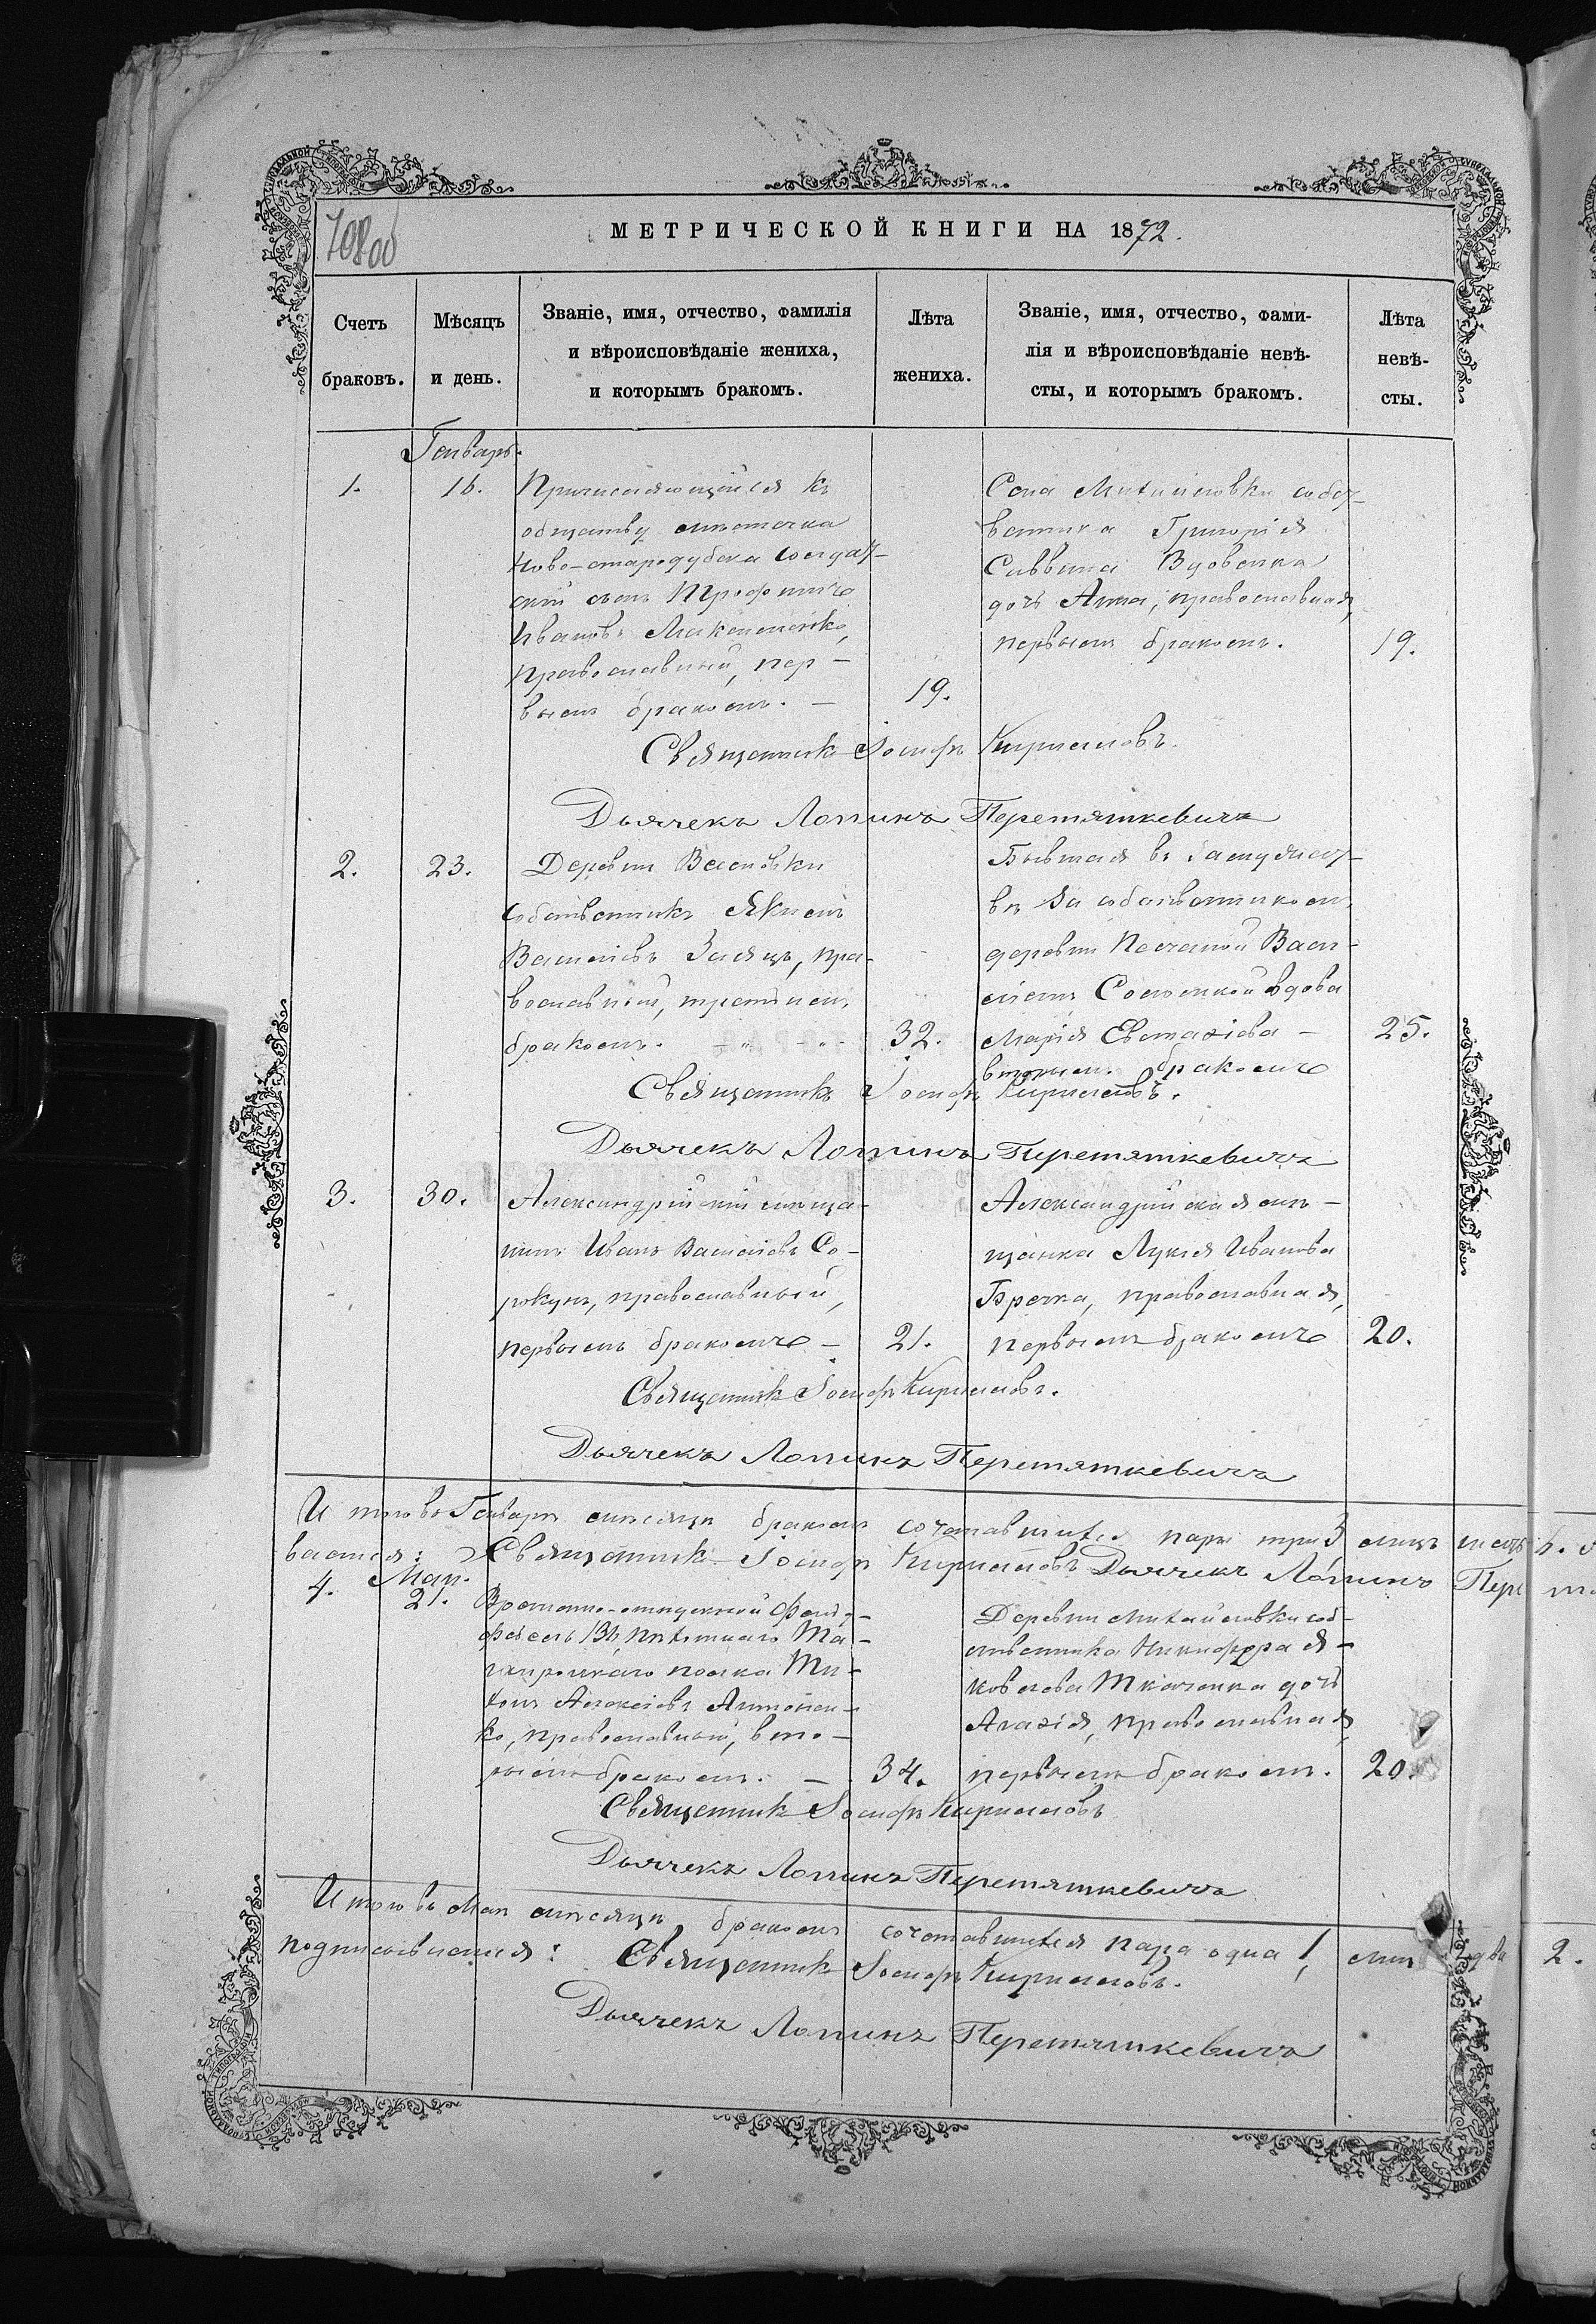 МЕТРИЧЕСКОЙ КНИГИ НА 1872.
Счетъ браковъ.
Мѣсяцъ и день.
Званіе, имя, отчество, фамилія
и вѣроисповѣданіе жениха,
и которымъ бракомъ.
Лѣта жениха.
Званіе, имя, отчество, фами-
лія и вѣроисповѣданіе невѣ-
сты, и которымъ бракомъ.
Лѣта невѣ-
сты.
Генварь.
1.
16.
Причисляющійся къ
обществу мѣстечка
Ново-стародубска солдат-
скій сынъ Трофимъ
Ивановъ Максименко,
православный, пер-
вымъ бракомъ. —
19.
Села Михайловки собст-
венника Григорія
Саввина Вдовенка
дочь Анна, православная,
первымъ бракомъ.
19.
Священникъ Іосифъ Кирилловъ.
Дьячекъ Логинъ Перетяткевичъ
2.
23.
Деревни
Собственникъ Якимъ
Васильевъ Заяцъ, пра-
вославный, третьимъ
бракомъ.
32.
Бывшая въ замужест-
вѣ за собственникомъ
деревни Васи-
ліемъ вдова
Марія Евстахіева —
вторымъ бракомъ
25.
Священникъ Іосифъ Кирилловъ.
Дьячекъ Логинъ Перетяткевичъ
3.
30.
Александрійскій мѣща-
нинъ Иванъ Васильевъ Со-
рокунъ, православный,
первымъ бракомъ —
21.
Александрійская мѣ-
щанка Лукія Иванова
Гречка, православная,
первымъ бракомъ
20.
Священникъ Іосифъ Кирилловъ.
Дьячекъ Логинъ Перетяткевичъ
Итого въ Генварѣ мѣсяцѣ бракомъ сочетавшихся пары три 3 лицъ шесть 6.
Священникъ Іосифъ Кирилловъ Дьячекъ Логинъ
4.
Май.
21.
Временно-отпускной Фельд-
фебель 134 пѣхотнаго Та-
ганрогскаго полка Ти-
хонъ Алексіевъ Антонен-
ко, православный, вто-
рымъ бракомъ. —
34.
Деревни Михайловки соб-
ственника Никифора Я-
ковлева Ткаченка дочь
Агафія, православная,
первымъ бракомъ.
20.
Священникъ Іосифъ Кирилловъ
Дьячекъ Логинъ Перетяткевичъ
Итого въ Маѣ мѣсяцѣ бракомъ сочетавшихся пара одна 1, лицъ два 2.
Священникъ Іосифъ Кирилловъ.
Дьячекъ Логинъ Перетяткевичъ